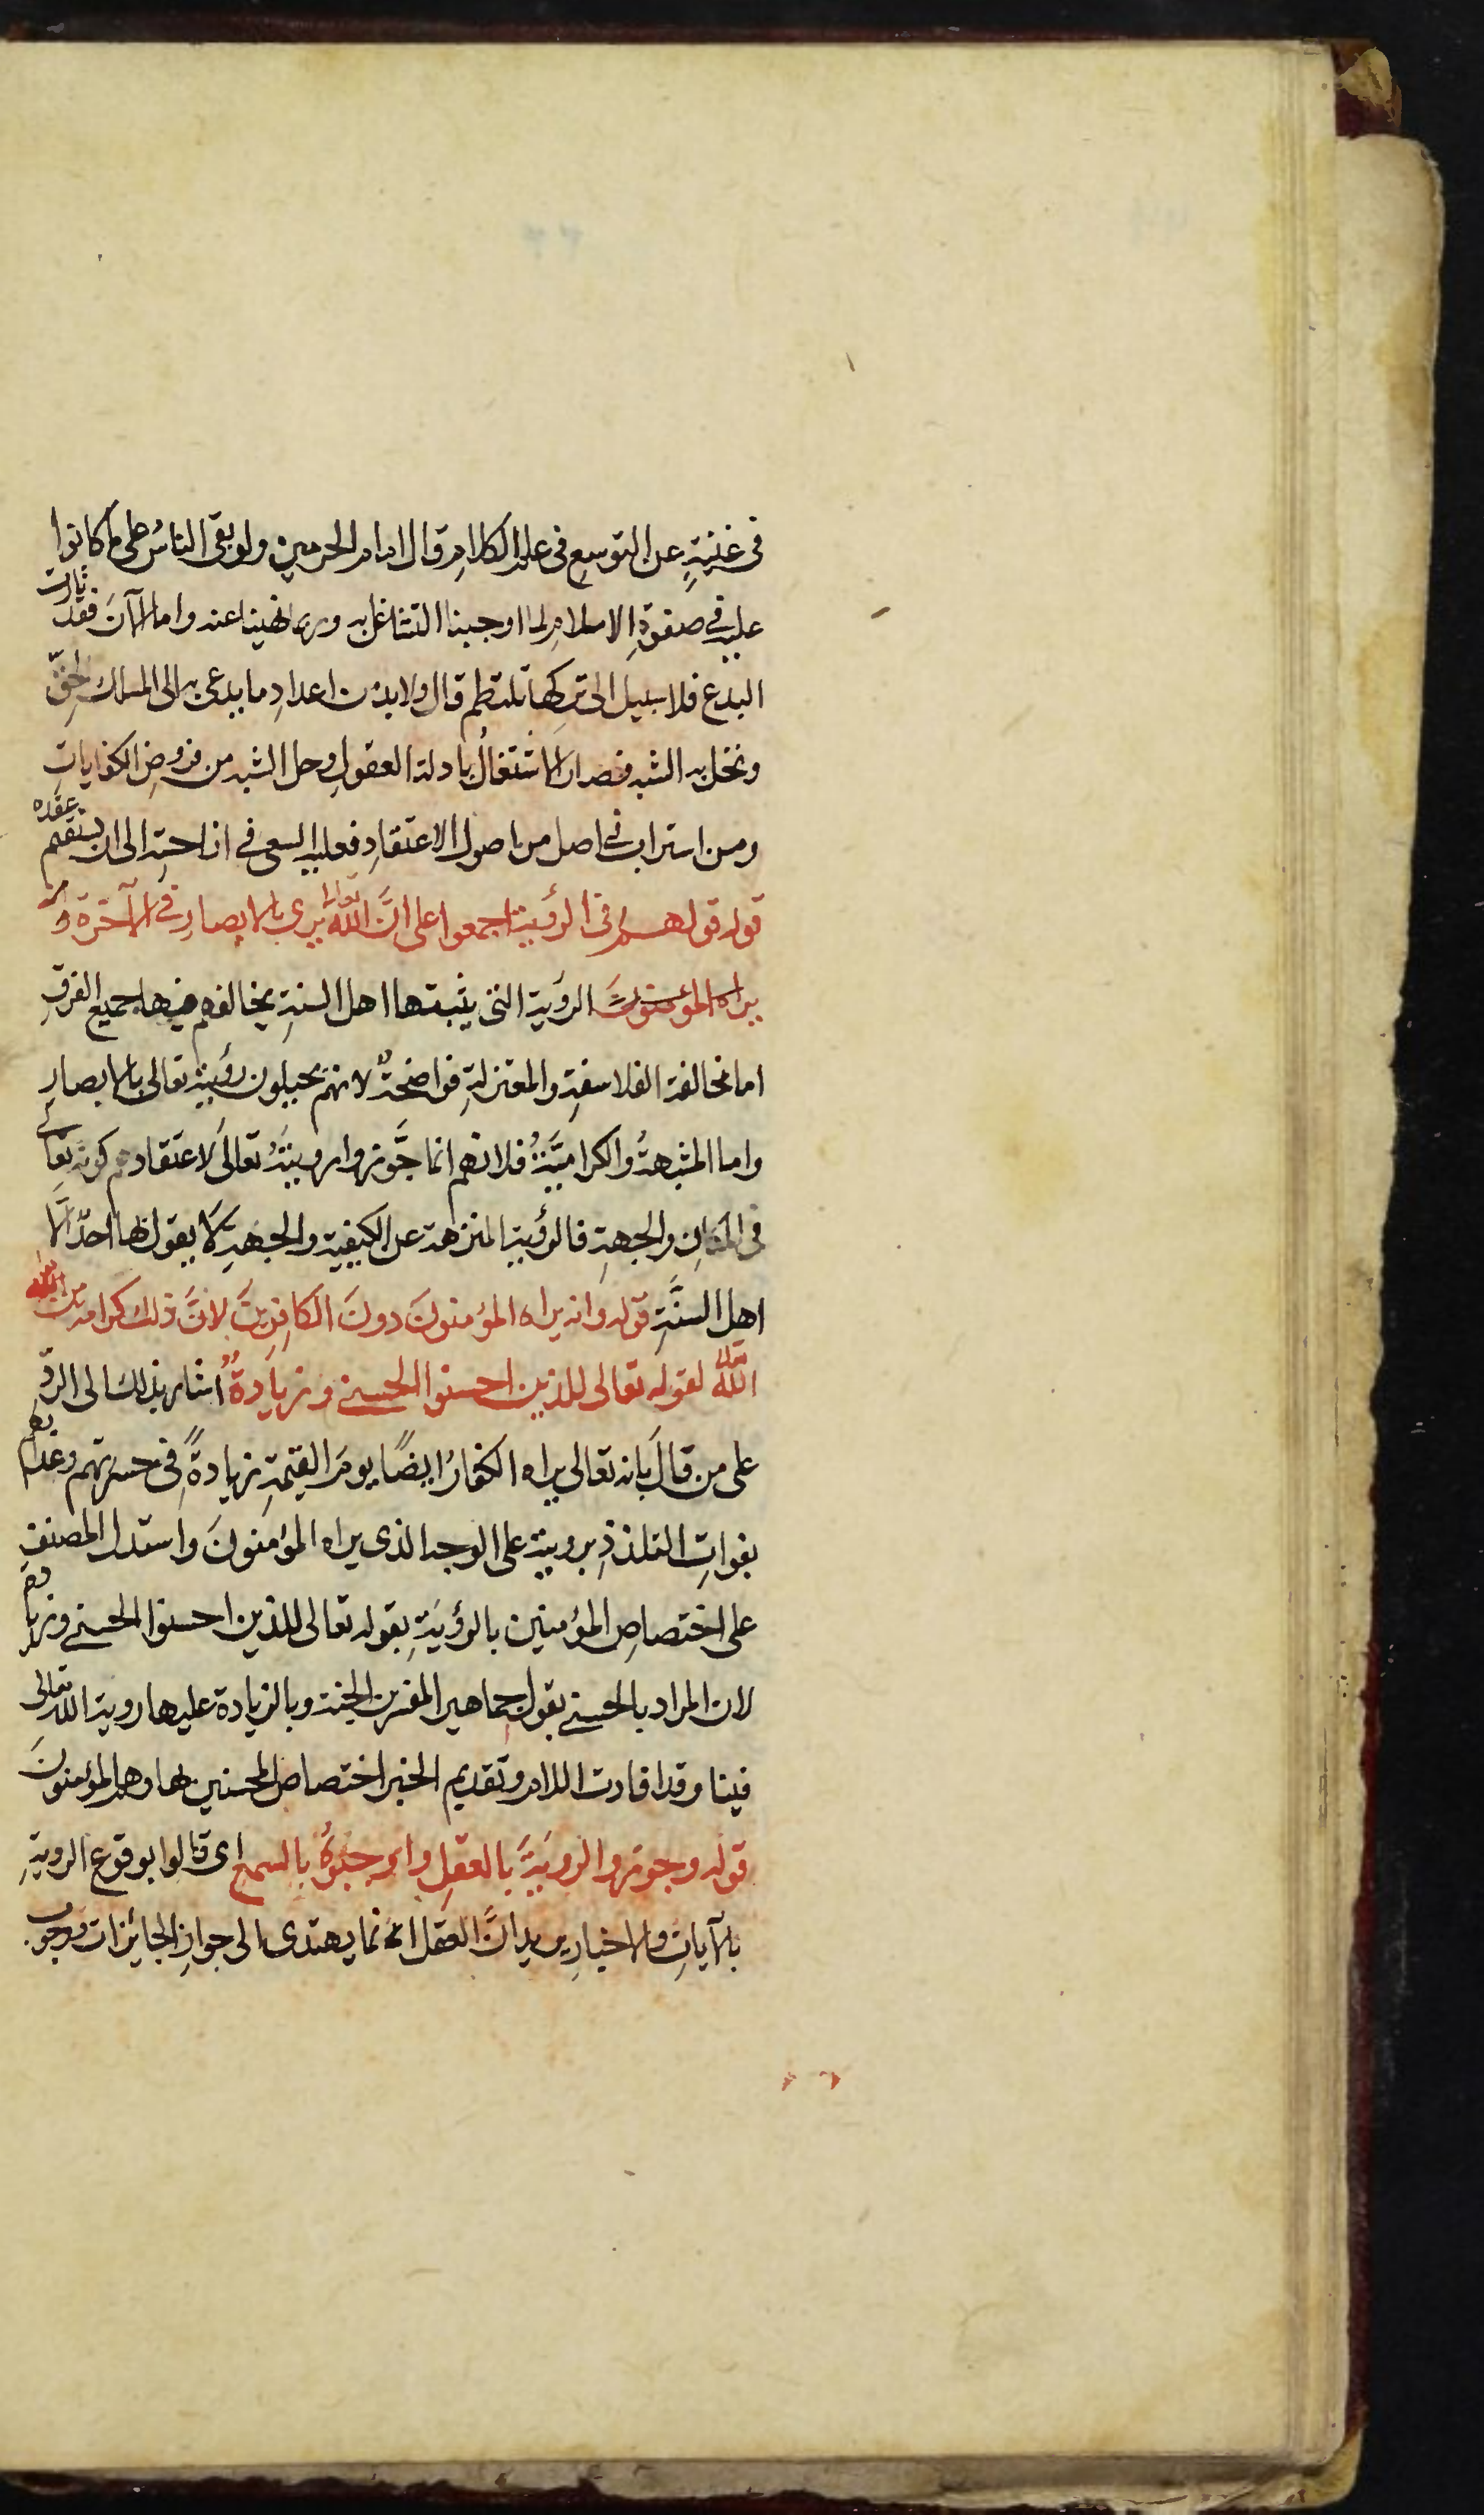 في غنية عن التوسع في علم الكلام قال امام الحرمين ولو بقي الناس على ما كانوا
عليه في صفوة الاسلام لما اوجبنا التشاغل به وربما نهينا عنه واما الآن فقد ثارت
البدع فلا سبيل الى تركها تلتطم قال ولا بد من اعداد ما يدعى به الى المسلك الحق
وتحل به الشبه فصار الاشتغال بادلة العقول وحل الشبه من فروض الكفايات
ومن استراب في اصل من اصول الاعتقاد فعليه السعي في ازاحته الى ان يستقيم عقده
قوله قولهم في الرؤية اجمعوا على انّ الله تعالى يرى بالابصار في الآخرة وانه
يراه المؤمنون الرؤية التي يثبتها اهل السنة يخالفهم فيها جميع الفرق
اما مخالفة الفلاسفة والمعتزلة فواضحة لانهم يحيلون رؤيته تعالى بالابصار
واما المشبهة والكرامية فلانهم انما جوّزوا رويته تعالى لاعتقادهم كونه تعالى
في المكان والجهة فالرؤية المنزهة عن الكيفية والجهة لا يقول بها احد الّا
اهل السنّة قوله وانه يراه المؤمنون دون الكافرين لانّ ذلك كرامة من
الله تعالى لقوله تعالى للذين احسنوا الحسنى وزيادة اشار بذلك الى الردّ
على من قال بانه تعالى يراه الكفار ايضًا يوم القيمة زيادةً في حسرتهم وعذابهم
بفوات التلذذ برويته على الوجه الذى يراه المؤمنون واستدل المصنف
على اختصاص المؤمنين بالرؤية بقوله تعالى للذين احسنوا الحسنى وزيادة
لان المراد بالحسنى بقول جماهير المفسرين الجنة وبالزيادة عليها روية الله تعالى
فيها وقد افادت اللام وتقديم الخبر اختصاص المحسنين بها وهم المؤمنون
قوله وجوزوا الروية بالعقل واوجبوه بالسمع اى قالوا بوقوع الروية
بالآيات والاخبار يريد انّ العقل انما يهتدى الى جواز الجائزات ووجوب